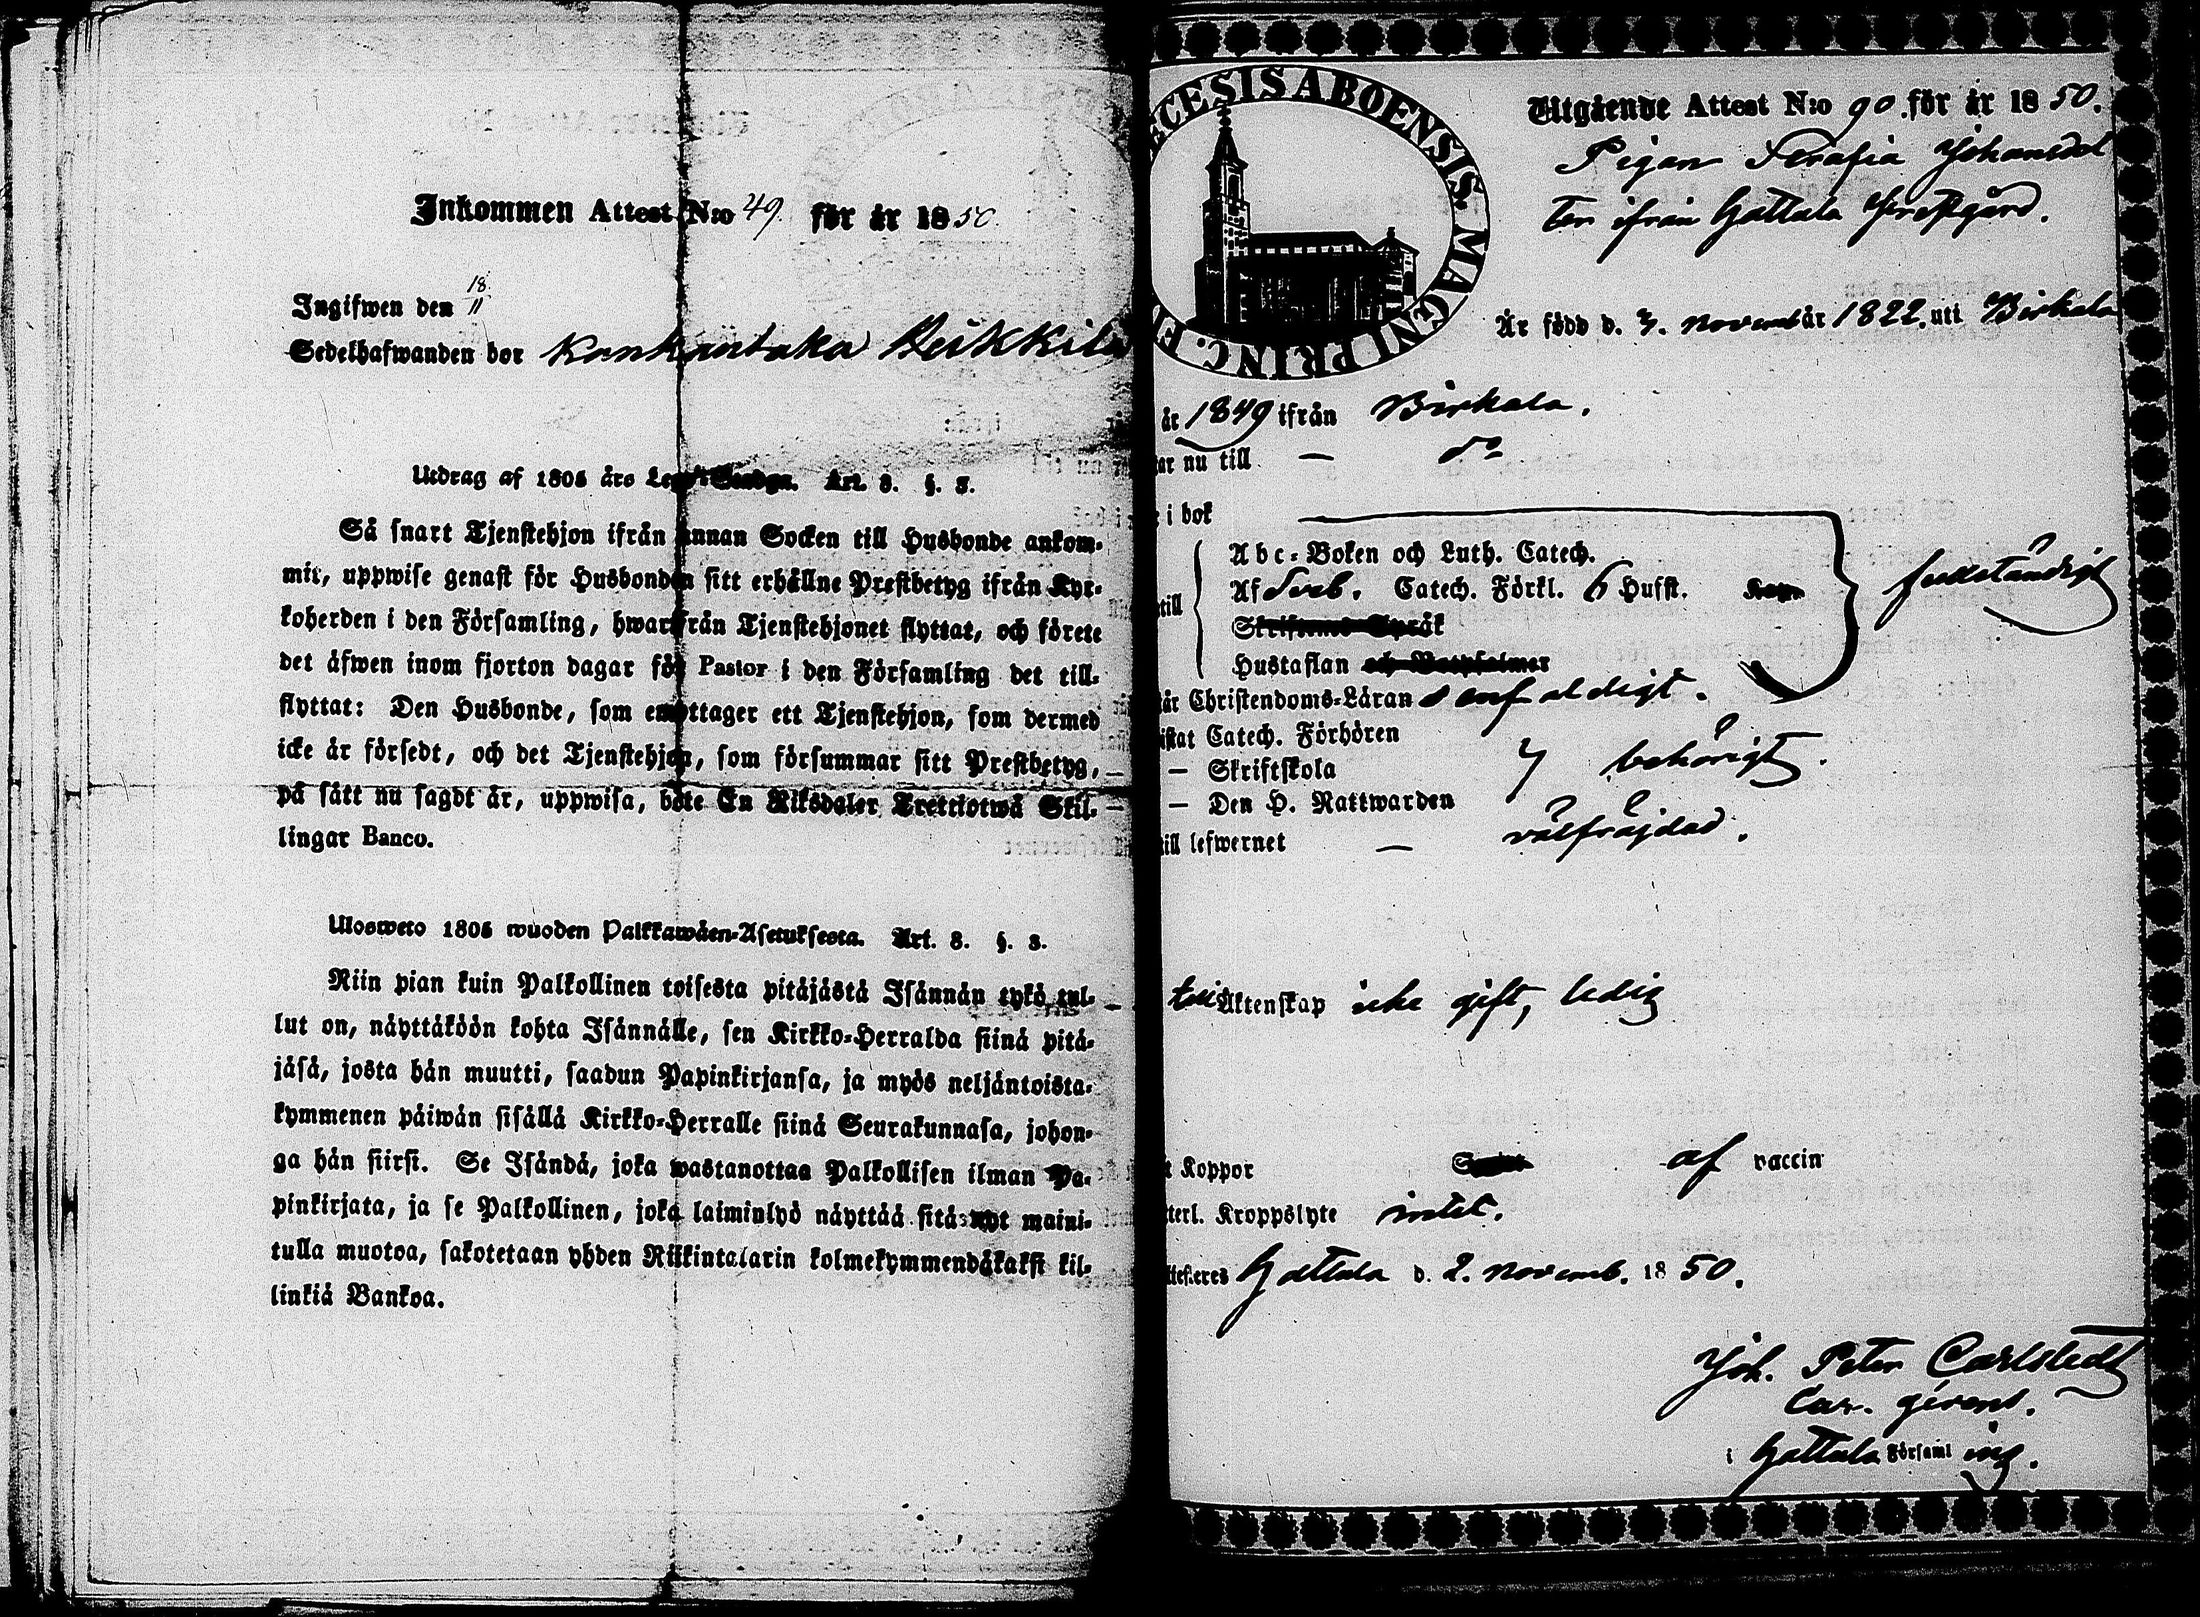 Inkommen Attest N:o 49. för år 1850.
Ingifwen den 18/11
Sedelhafwanden bor Kankantaka Heikkilä
Utdrag af 1805 års Art. 8. §. 3.
Så snart Tjenstehjon ifrån annan Socken till Husbonde ankom-
mit, uppwise genast för Husbonden sitt erhållne Prestbetyg ifrån Kyr-
koherden i den Församling, hwarifrån Tjenstehjonet flyttat, och förete
det äfwen inom fjorton dagar för Pastor i den Församling det till-
flyttat: Den Husbonde, som emottager ett Tjenstehjon, som dermed
icke är försedt, och det Tjenstehjon, som försummar sitt Prestbetyg,
på sätt nu sagdt är, uppwisa, böte En Riksdaler Trettiotwå Skil-
lingar Banco.
Ulosweto 1805 wuoden Palkkawäen-Asetuksesta. Art. 8. §. 3.
Niin pian kuin Palkollinen toisesta pitäjästä Isännän tykö tul-
lut on, näyttäköön kohta Isännälle, sen Kirkko-Herralda siinä pitä-
jäsä, josta hän muutti, saadun Papinkirjansa, ja myös neljäntoista-
kymmenen päiwän sisällä Kirkko-Herralle siinä Seurakunnasa, johon-
ga hän siirsi. Se Isändä, joka wastanottaa Palkollisen ilman Pa-
pinkirjata, ja se Palkollinen, joka laiminlyö näyttää sitä nyt maini-
tulla muotoa, sakotetaan yhden Riikintalarin kolmekymmendäkaksi kil-
linkiä Bankoa.
CESIS ABOENSIS. MAGNI PRINC. F
Utgående Attest N:o 90. för år 1850.
Pigan Serafia Johansdot
ter ifrån Gattala Prestgård.
Är född d. 3. novemb år 1822. uti Birkala
år 1849 ifrån Birkala.
ar nu till — do
i bok
Abc-Boken och Luth. Catech.
till Af Sveb. Catech. Förkl. 6 Hufst. fullständigt
Skriftenes Språk
Hustaflan och Botpsalmer
är Christendoms-Läran enfaldigt.
istat Catech. Förhören
— Skriftskola behörigt.
— Den H. Nattwarden
till lefwernet — välfräjdad.
till Äktenskap icke gift, ledig
t Koppor af vaccin
tterl. Kroppslyte intet.
ttesteres Gattala d. 2. novemb. 1850.
Joh. Peter Carlstedt
Cur. gerens.
i Gattala Församling.